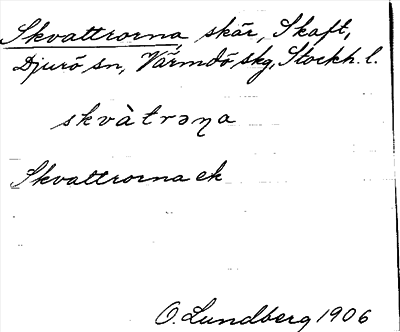 Skvattrorna skär, Skaft,
Djurö sn, Värmdö skg, Stockh. l.
skvàtrəꞑa
Skvattrorna ek
O. Lundberg 1906